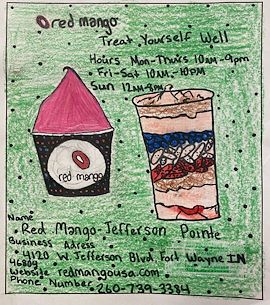 red mango
Treat Yourself Well
Hours Mon-Thurs 10AM-9pm
Fri-Sat 10AM-10PM
Sun 12AM-8pm
red mango
Name
Red Mango-Jefferson Pointe
Business Adress
4120 W. Jefferson Blvd. Fort Wayne IN
46804
Website redmangousa.com
Phone Number 260-739-3384